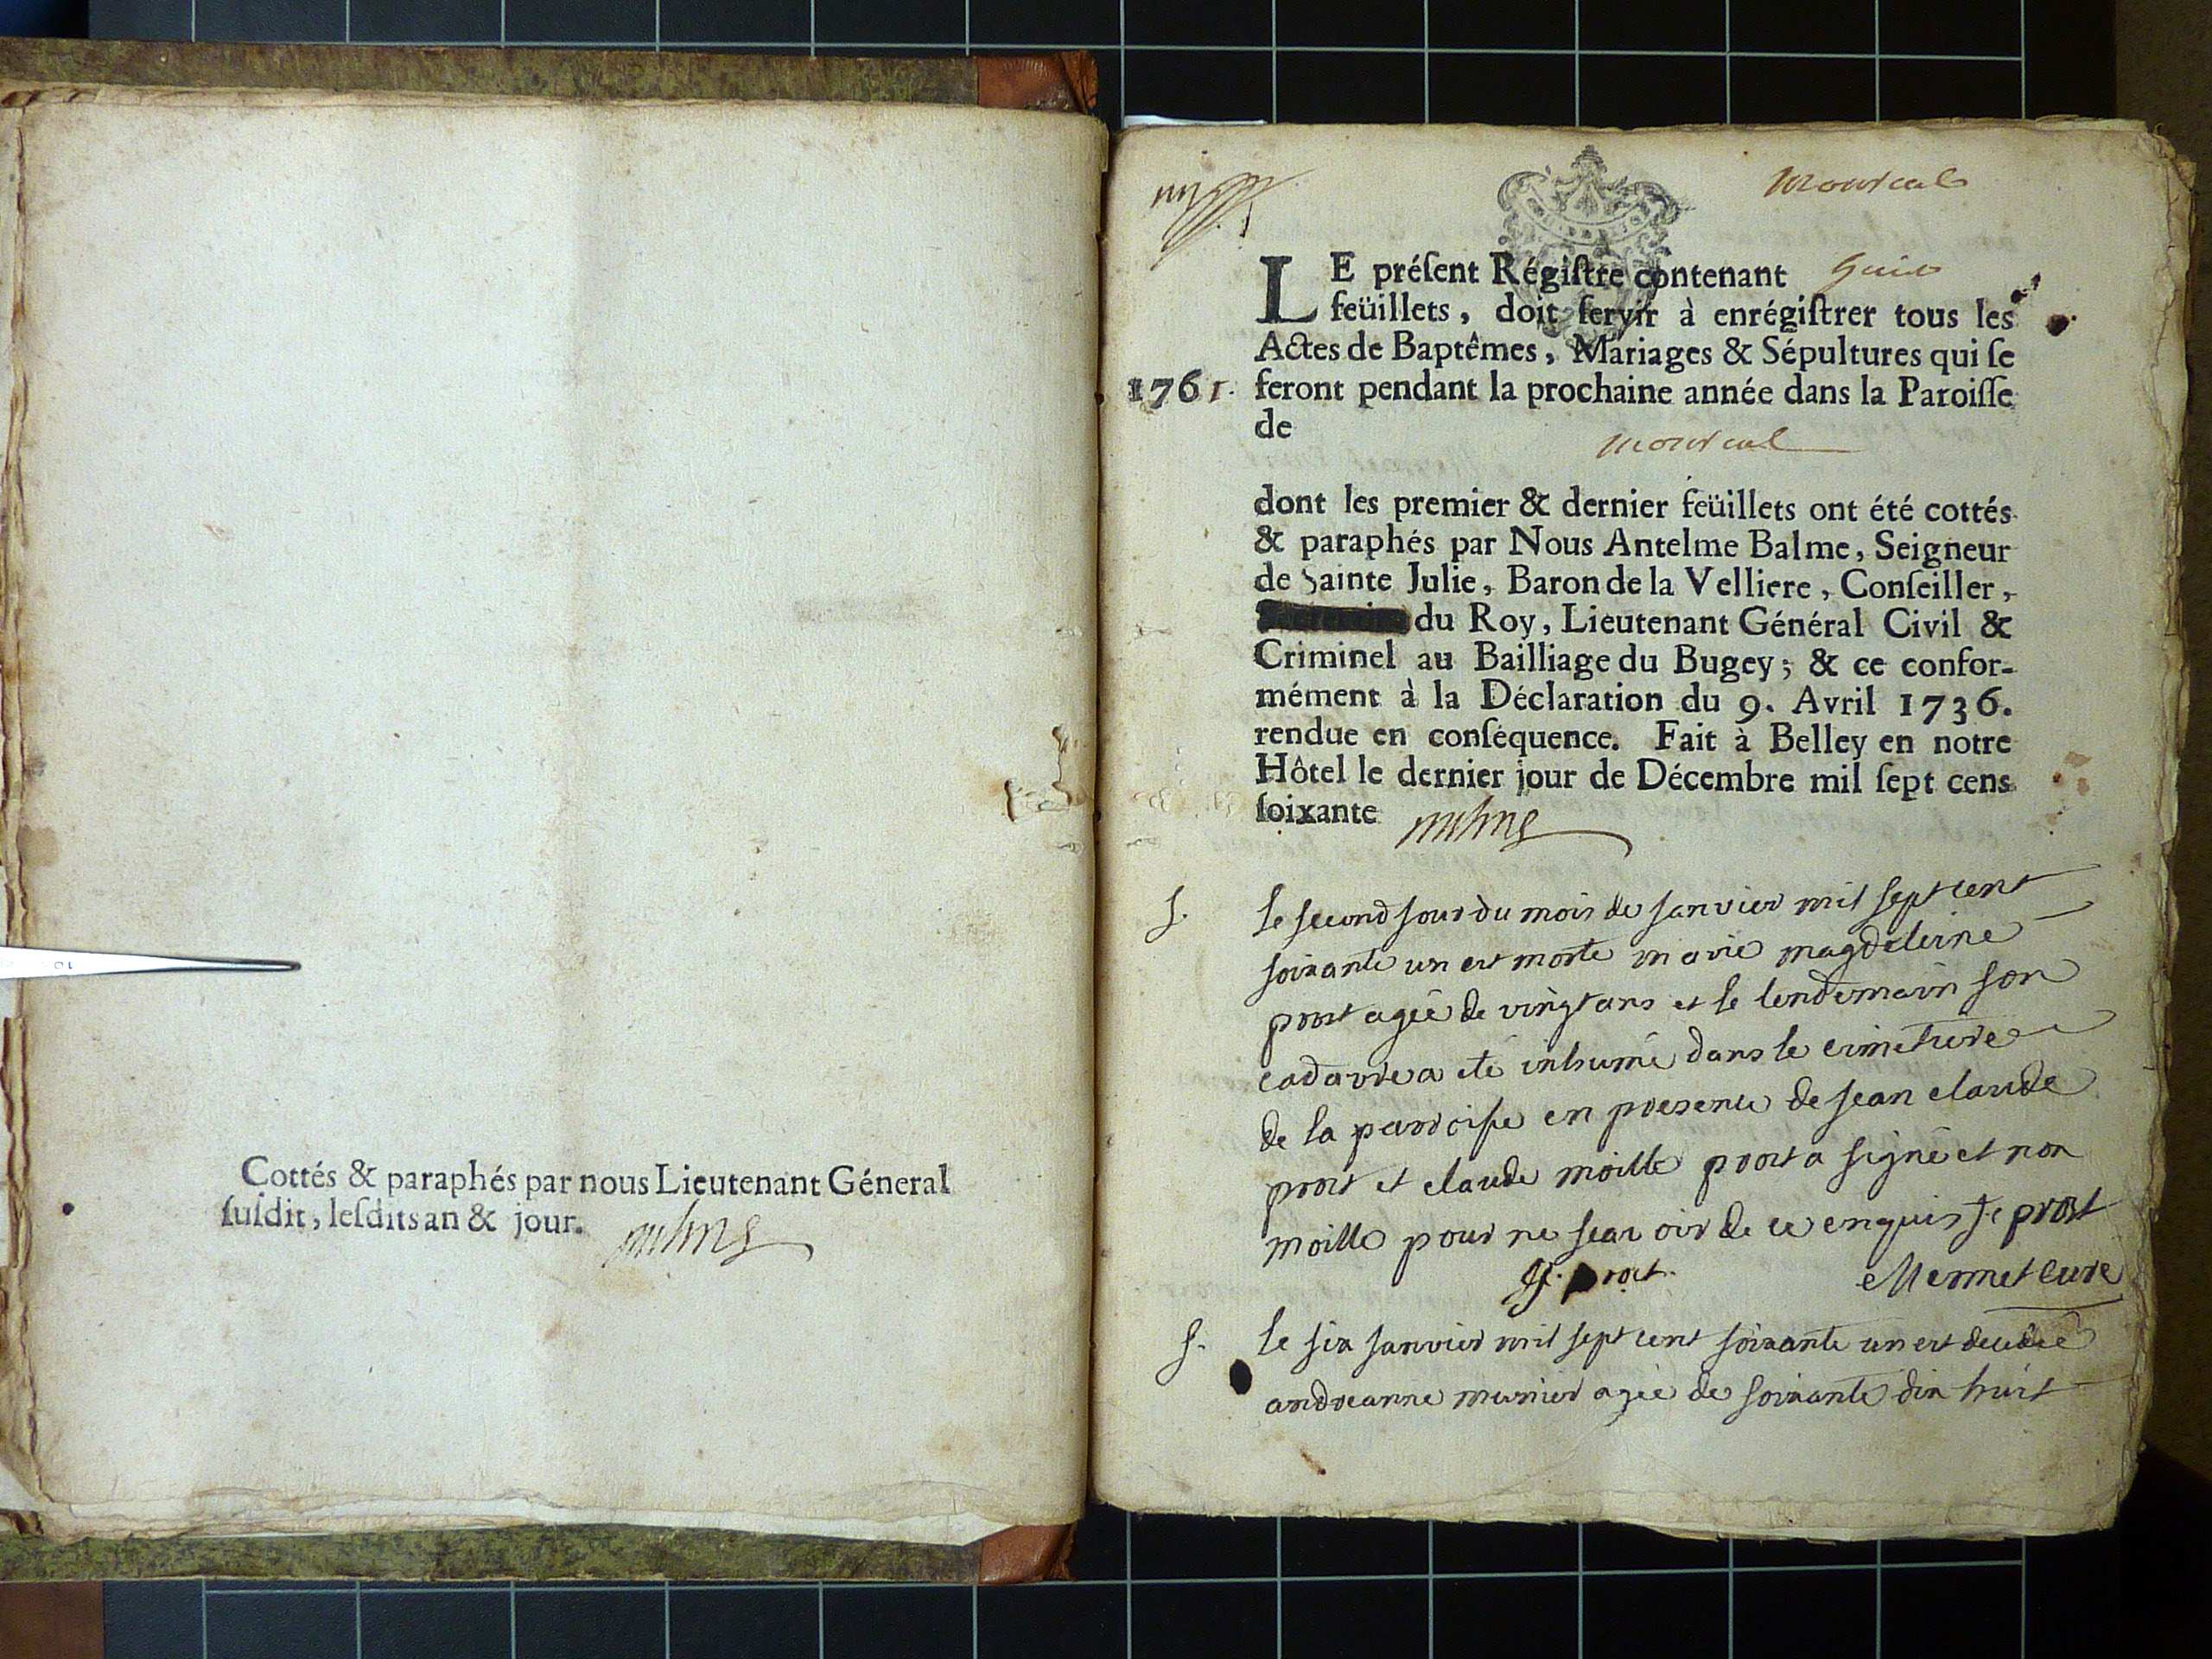 Cottés & paraphés par nous Lieutenant Géneral
ſuſdit, leſdits an & jour.
Montreal
LE préſent Régiſtre contenant huit
feüillets, doit ſervir à enrégiſtrer tous les
Actes de Baptêmes, Mariages & Sépultures qui ſe
1761. feront pendant la prochaine année dans la Paroiſſe
de
montreal
dont les premier & dernier feüillets ont été cottés
& paraphés par Nous Antelme Balme, Seigneur
de Sainte Julie, Baron de la Velliere, Conſeiller,
du Roy, Lieutenant Général Civil &
Criminel au Bailliage du Bugey; & ce confor-
mément à la Déclaration du 9. Avril 1736.
rendue en conſéquence. Fait à Belley en notre
Hôtel le dernier jour de Décembre mil ſept cens
ſoixante
S. le second jour du mois de janvier mil sept cent
soixante un est morte marie magdeleine
prost agée de vingt ans et le lendemain son
cadavre a eté inhumé dans le cimetiere
de la parroisse en presence de jean claude
prost et claude moille prost a signé et non
moille pour ne scavoir de ce enquis J c prost
J. prost. Mermet Curé
S. le six janvier mil sept cent soixante un est decedée
andreanne munier agée de soixante dix huit